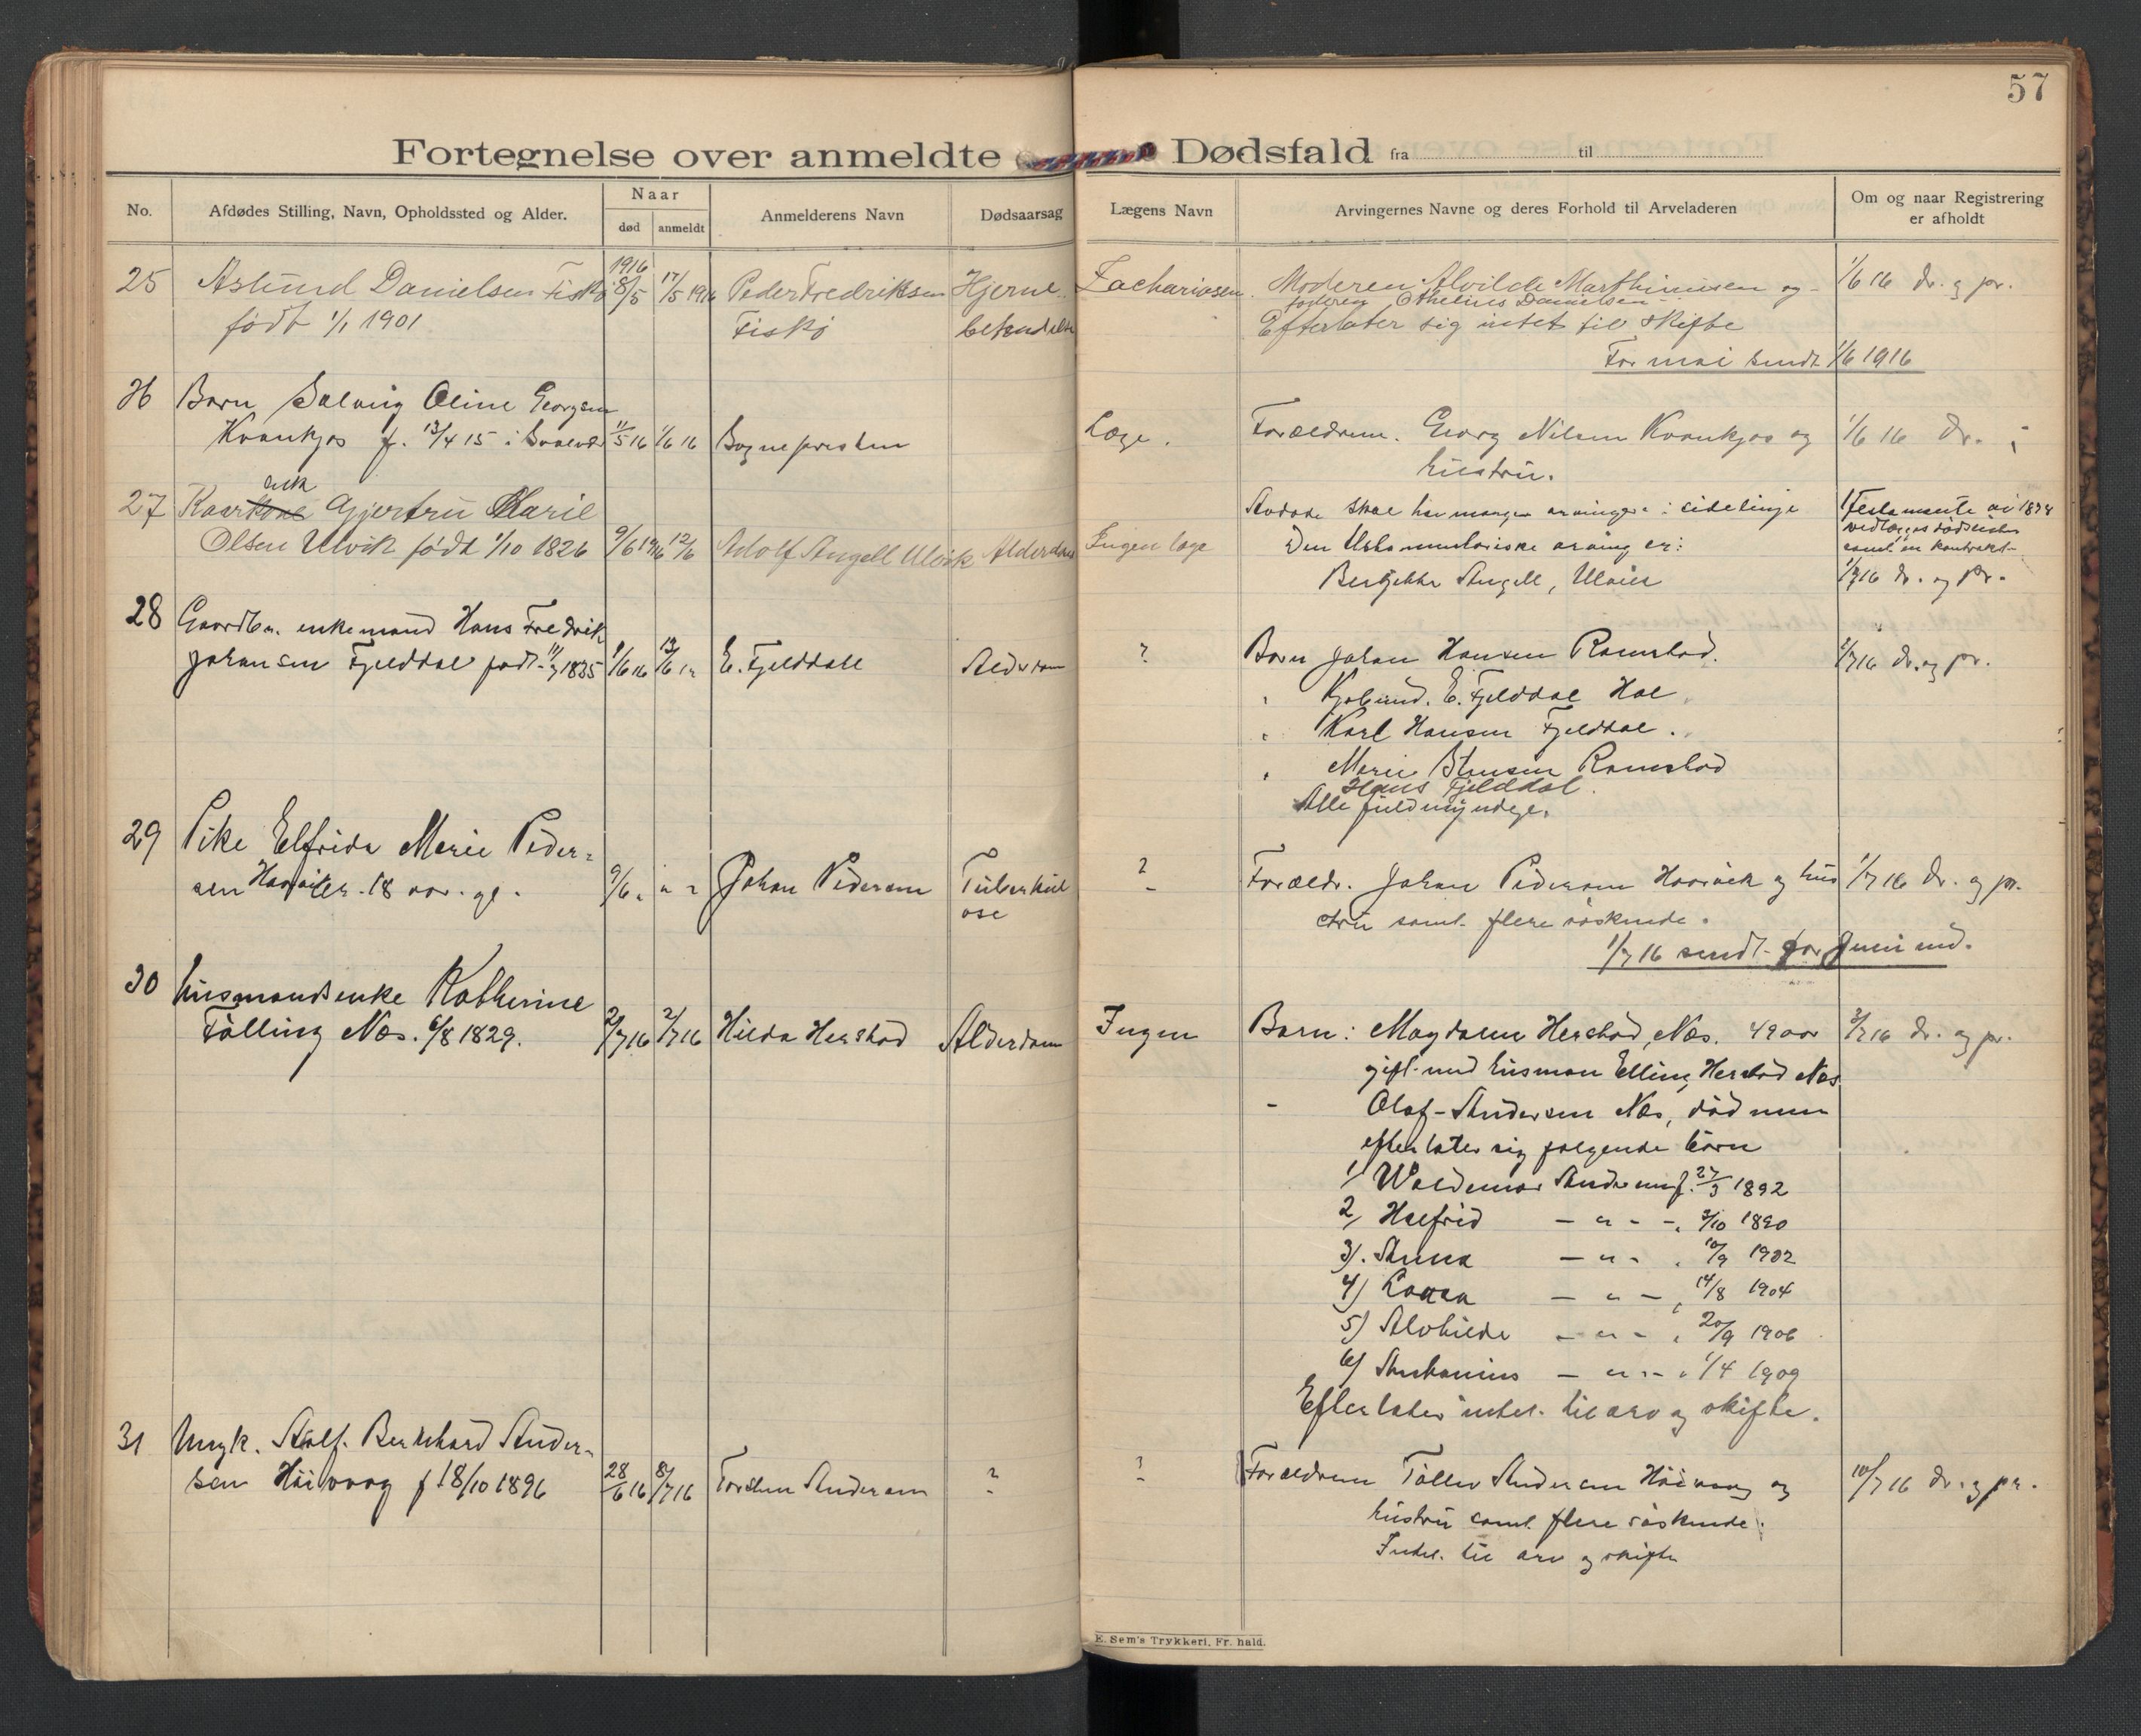 57
Fortegnelse over anmeldte Dødsfald fra til
No.
Afdødes Stilling, Navn, Opholdssted og Alder.
Naar
død
anmeldt
Anmelderens Navn
Dødsaarsag
Lægens Navn
Arvingernes Navne og deres Forhold til Arveladeren
Om og naar Registrering
er afholdt
1916
25 Danielsen Fiskø 8/5 17/5 1916 Peder Fredriksen Hjerne Zachariasen. Moderen Alvilde Marthinusen og 1/6 16 dr. og pr.
faderen Othelius Danielsen
født 1/1 1901 Fiskø Efterlater sig intet til skifte
For mai sendt 1/6 1916
26 Barn Solveig Oline Georgsen
Kvankjos f. 13/4 15 i 11/5 16 1/6 16 Sognepresten Læge. Forældrene. Georg Nilsen Kvankjos og 1/6 16 dr.
hustru.
enk
27 Gjertru Marie Avdøde skal ha mange arvinger i sidelinje Testamente av 1874
vedlægges
samt en kontrakt
Olsen Ulvik født 1/10 1826 9/6 1916 12/6 Adolf Angell Ulvik Alderdom Ingen læge Den testamentariske arving er:
Angell, Ulvik 1/7 16 dr. og pr.
28 Gaardbr. enkemand Hans Fredrik
Johansen Fjelddal født 11/7 1835 1/6 16 13/6 E. Fjelddal Alderdom ? Barn Johan Hansen Ramstad. 2/7 16 dr. og pr.
E. Fjelddal
Karl Hansen Fjelddal.
Marie Ramstad
Hans Fjelddal.
Alle fuldmyndige.
29 Pike Elfrida Marie Peder-
sen 18 aar. gl. 9/6 Johan Pedersen Tuberkul ? Foreldr. Johan Pedersen og hus 1/7 16 dr. og pr.
ose
stru samt flere søskende.
1/7 16 sendt for Juni md.
30 husmandsenke Katherine
Tølling Næs. 6/8 1829. 2/7 16 2/7 16 Hilda Herstad Alderdom Ingen Barn: Magdalene Herstad, Næs. 49 aar 3/7 16 dr. og pr.
gift med husman Elling Herstad Næs
- Olaf Andersen Næs, død men
efterlater sig følgende børn
1) Waldemar Andersen f. 27/3 1892
2) Halfrid - " - 3/10 1890
3). Anna - " - 10/9 1902
4) - " - 14/8 1904
5) Alvhilde - " - 20/9 1906
6) - " - 1/4 1909
Efterlater intet til arv og skifte.
31 Ungk. Bernhard Ander-
sen f 18/10 1896 28/6 16 8/7 16 Andersen ? ? Forældrene Andersen og 10/7 16 dr. og pr.
hustru samt flere søskende.
Intet til arv og skifte
E. Sem's Trykkeri, Fr. hald.